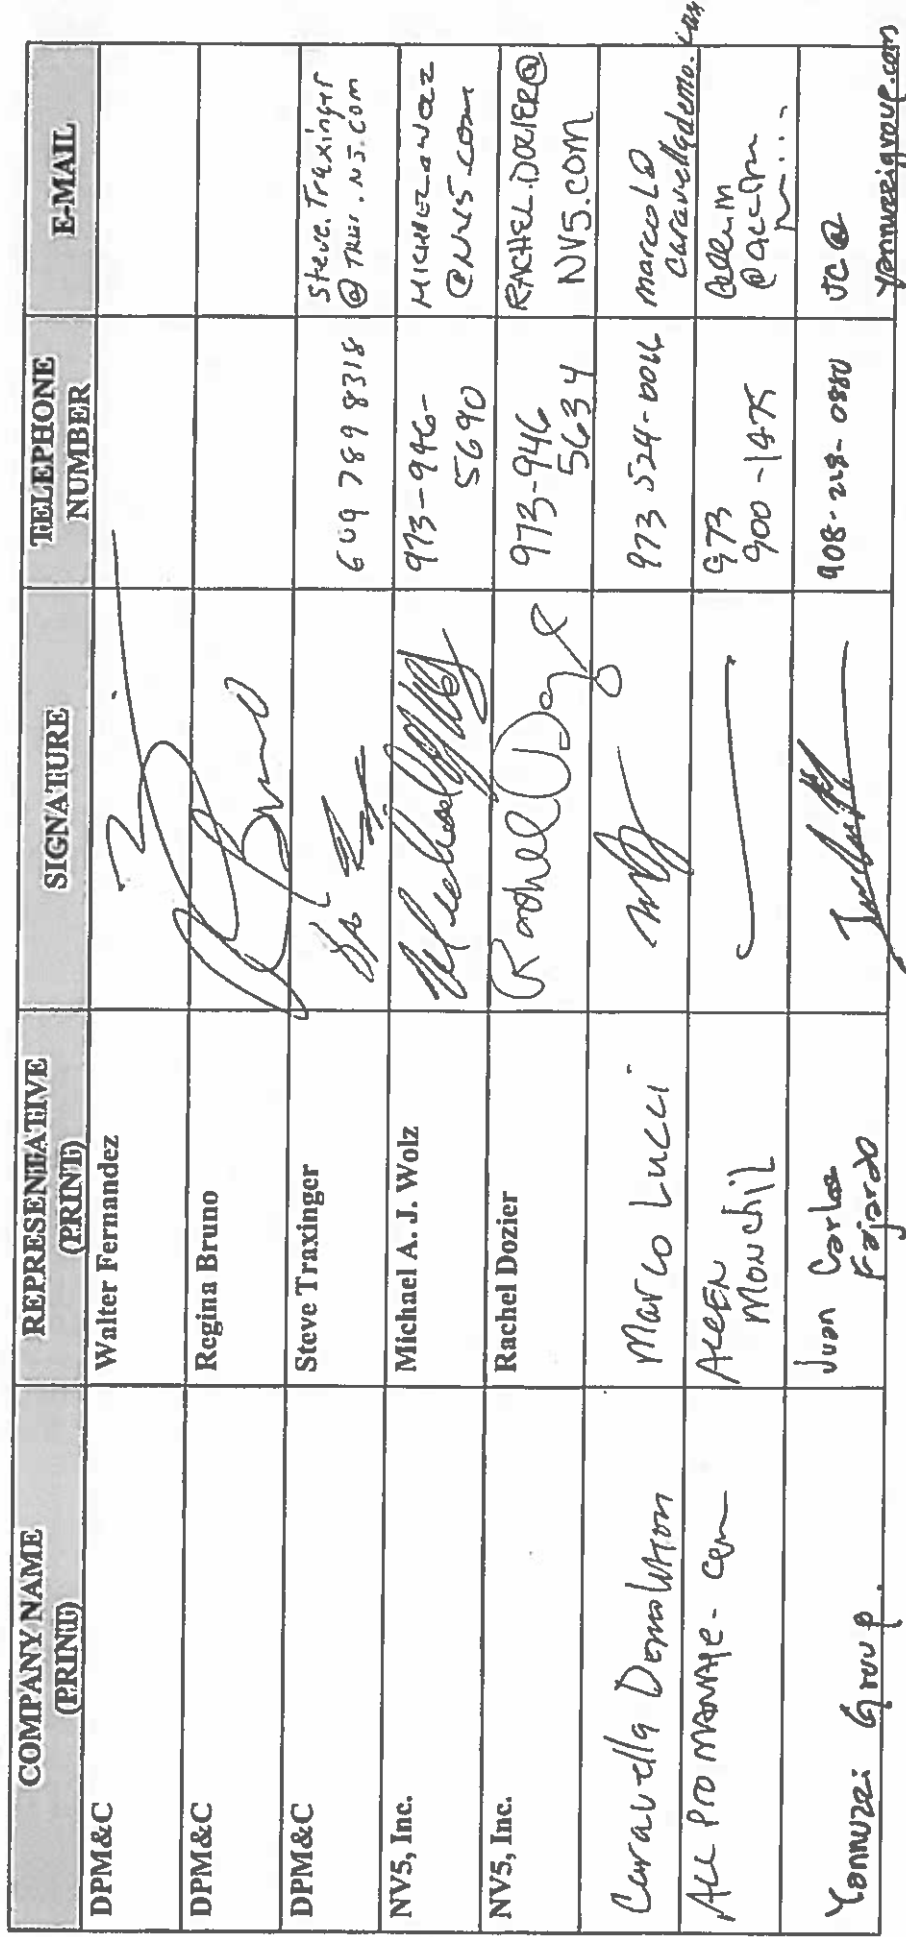 COMPANY NAME
(PRINT)
REPRESENTATIVE
(PRINT)
SIGNATURE
TELEPHONE
NUMBER
E-MAIL
DPM&C
Walter Fernandez
DPM&C
Regina Bruno
DPM&C
Steve Traxinger
609 789 8318
Steve.Traxinger
NV5, Inc.
Michael A. J. Wolz
973-946-
5690
@NV5.com
NV5, Inc.
Rachel Dozier
Rachel Doz
973-946
5634
RACHEL.DOZIER@
NV5.COM
Caravella Demolition
Marco Lucci
973 524-0016
marcol@
caravellademo.com
ALL PRO
Monchil
973
900-1475
Yannuzzi Group.
Juan Carlos
Fajardo
908-218-0880
JC@
yannuzzigroup.com